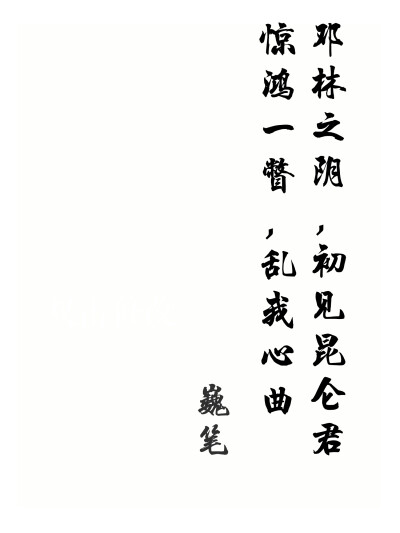 耶林之阴，初见昆仑君
惊鸿一瞥，乱我心曲
巍笔